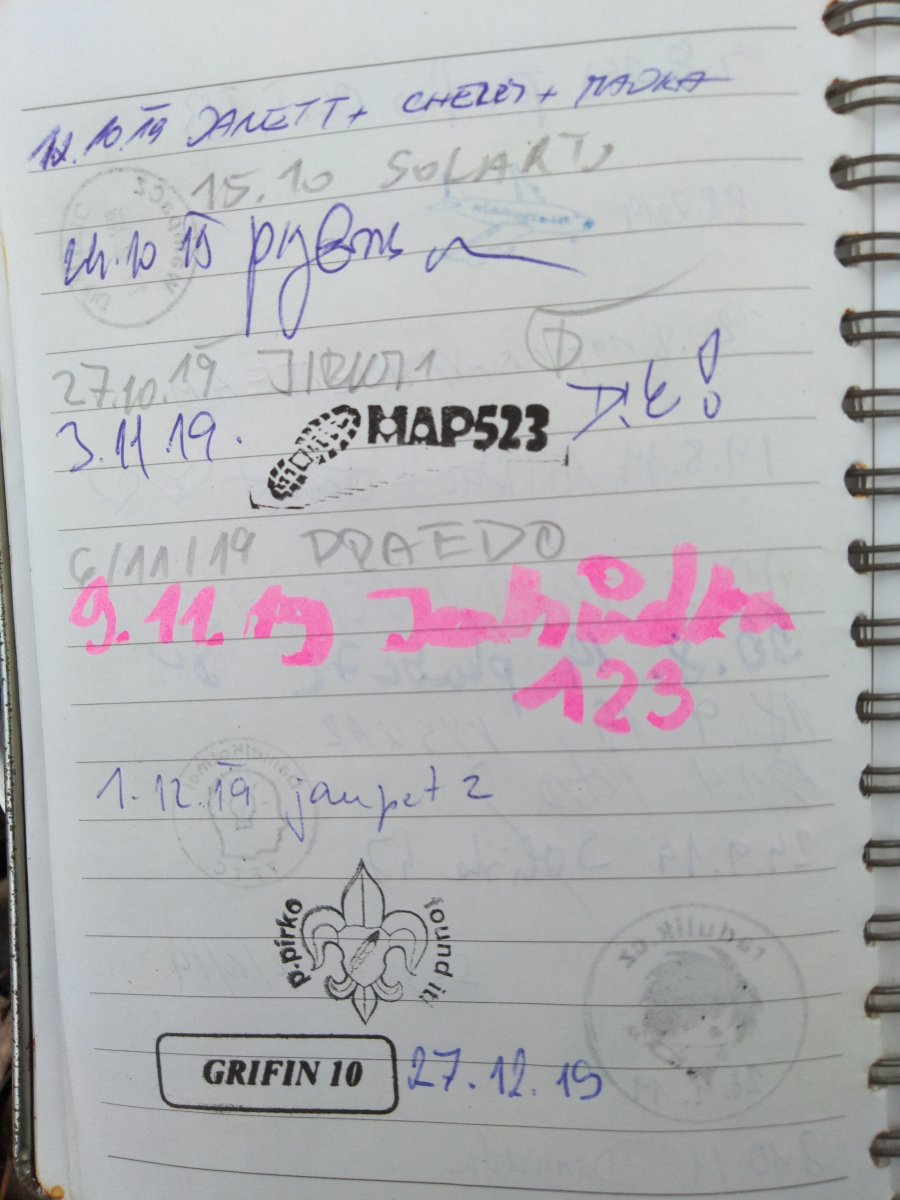 12.10.19 JANETT + CHELLY + MAOKA
15.10 SOLARTJ
24.10 19
27.10.19 JIRKU71
3.11 19. MAP523 D.K!
6/11/19 DRAEDO
9.11.19 Jahůdka
123
1.12.19 janpet2
p.pirko found it!
GRIFIN 10 27.12.19